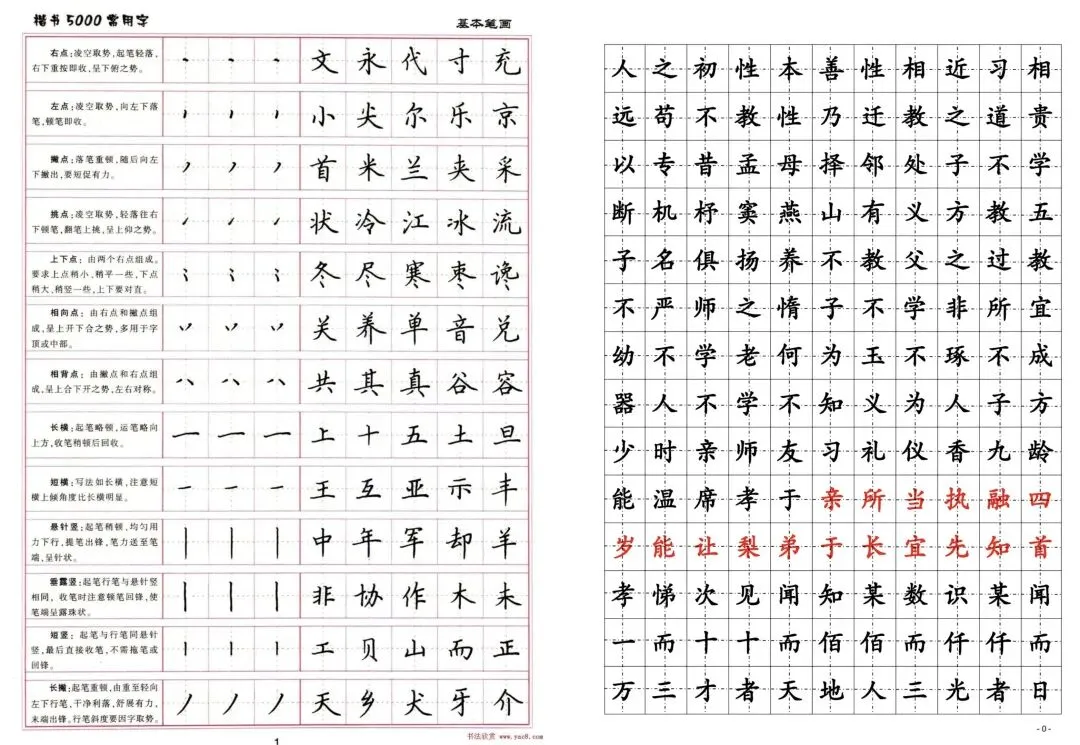 楷书5000常用字
基本笔画
右点:凌空取势,起笔轻落,
右下重按即收,呈下俯之势。
文永代寸充
左点:凌空取势,向左下落
笔,顿笔即收。
小尖尔乐京
撇点:落笔重顿,随后向左
下撇出,要短促有力。
首米兰夹采
挑点:凌空取势,轻落往右
下顿笔,翻笔上挑,呈上仰之势。
状冷江冰流
上下点:由两个右点组成。
要求上点稍小、稍平一些,下点
稍大、稍竖一些,上下要对直。
冬尽寒枣谗
相向点:由右点和撇点组
成,呈上开下合之势,多用于字
顶或中部。
关养单音兑
相背点:由撇点和右点组
成,呈上合下开之势,左右对称。
共其真谷容
长横:起笔略顿,运笔略向
上方,收笔稍顿后回收。
上十五土旦
短横:写法如长横,注意短
横上倾角度比长横明显。
王互亚示丰
悬针竖:起笔稍顿,均匀用
力下行,提笔出锋,笔力送至笔
端,呈针状。
中年军却羊
垂露竖:起笔行笔与悬针竖
相同,收笔时注意顿笔回锋,使
笔端呈露珠状。
非协作木未
短竖:起笔与行笔同悬针
竖,最后直接收笔,不需拖笔或
回锋。
工贝山而正
长撇:起笔重顿,由重至轻向
左下行笔,干净利落,舒展有力,
末端出锋。行笔斜度要因字取势。
天乡犬牙介
1
书法欣赏 www.yac8.com
人之初性本善性相近习相
远苟不教性乃迁教之道贵
以专昔孟母择邻处子不学
断机杼窦燕山有义方教五
子名俱扬养不教父之过教
不严师之惰子不学非所宜
幼不学老何为玉不琢不成
器人不学不知义为人子方
少时亲师友习礼仪香九龄
能温席孝于亲所当执融四
岁能让梨弟于长宜先知首
孝悌次见闻知某数识某闻
一而十十而佰佰而仟仟而
万三才者天地人三光者日
-0-